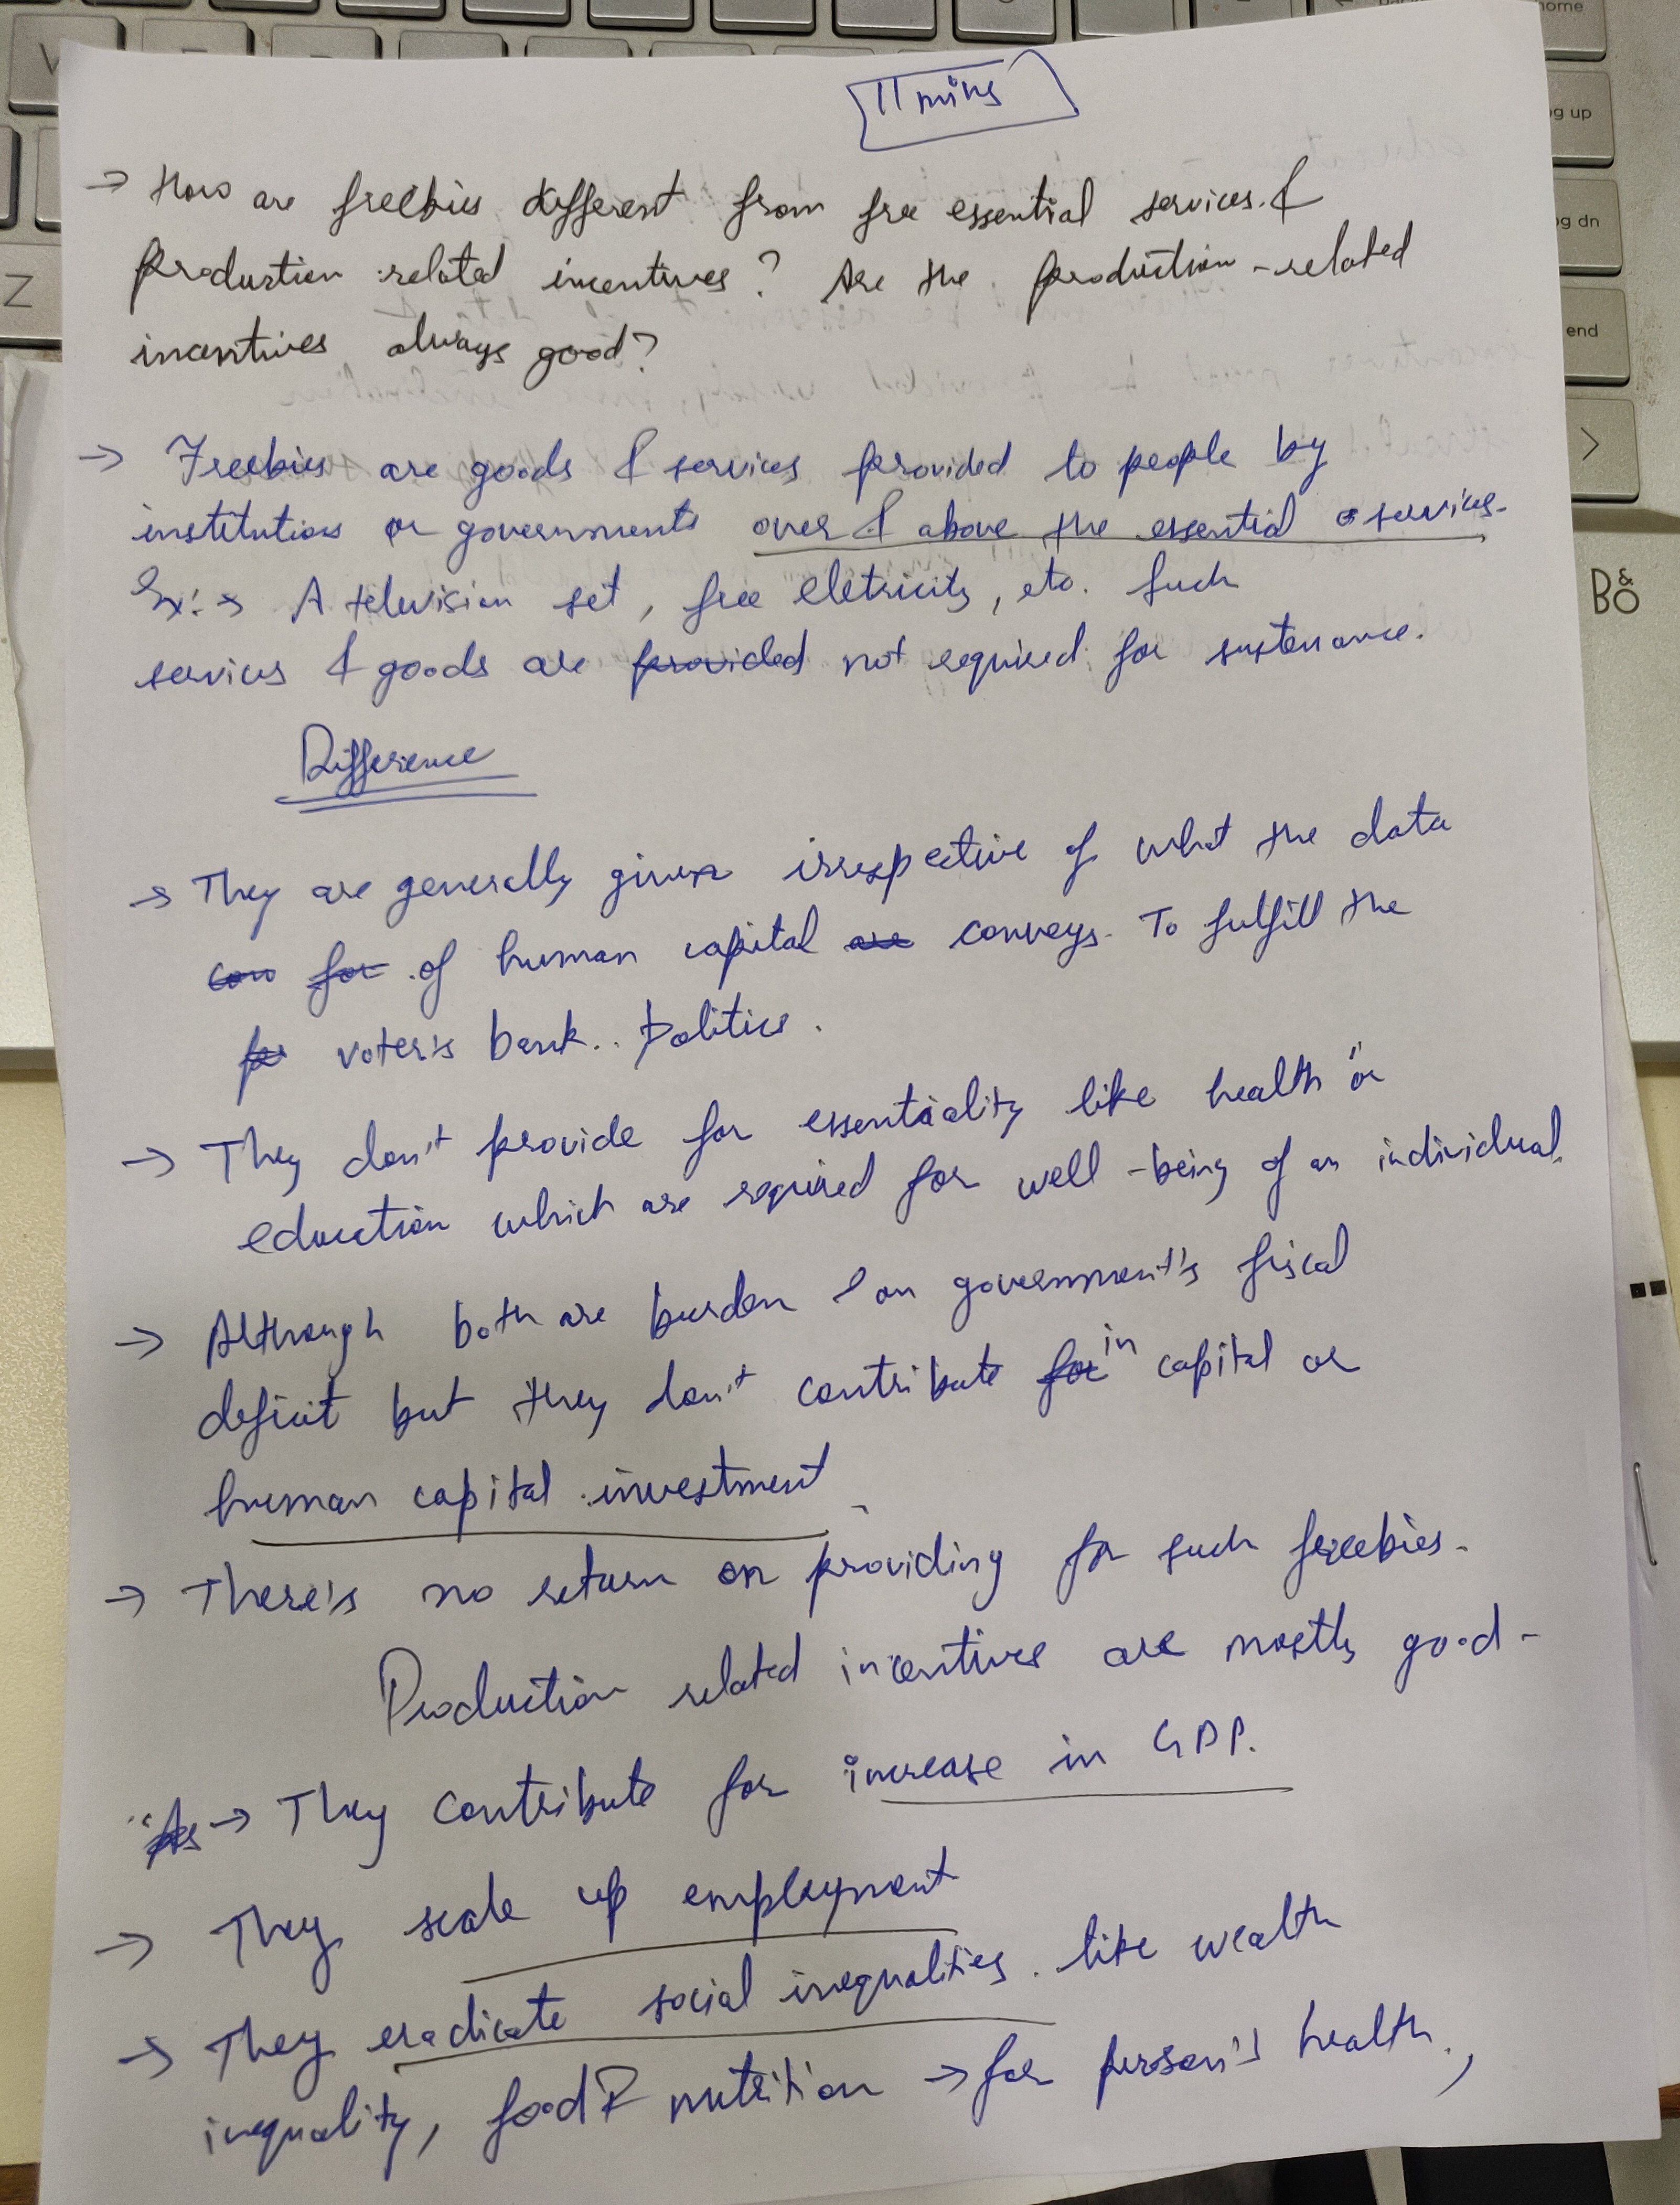 11 mins
→ How are freebies different from free essential services &
production related incentives? Are the production-related
incentives always good?
→ Freebies are goods & services provided to people by
institutions or governments over & above the essential services.
Ex:→ A television set, free eletricity, etc. Such
services & goods are provided not required for sustenance.
Difference
→ They are generally given irrespective of what the data
con for of human capital are conveys. To fulfill the
for voter's bank politics.
→ They don't provide for essentiality like health or
education which are required for well-being of an individual.
→ Although both are burden on government's fiscal
deficit but they don't contribute for in capital or
human capital investment
→ There's no return on providing for such freebies.
Production related incentives are mostly good-
→ They contribute for increase in GDP.
→ They scale up employment
→ They eradicate social inequalities like wealth
inequality, food & nutrition → for person's health,
home
pg up
pg dn
end
Z
B&O